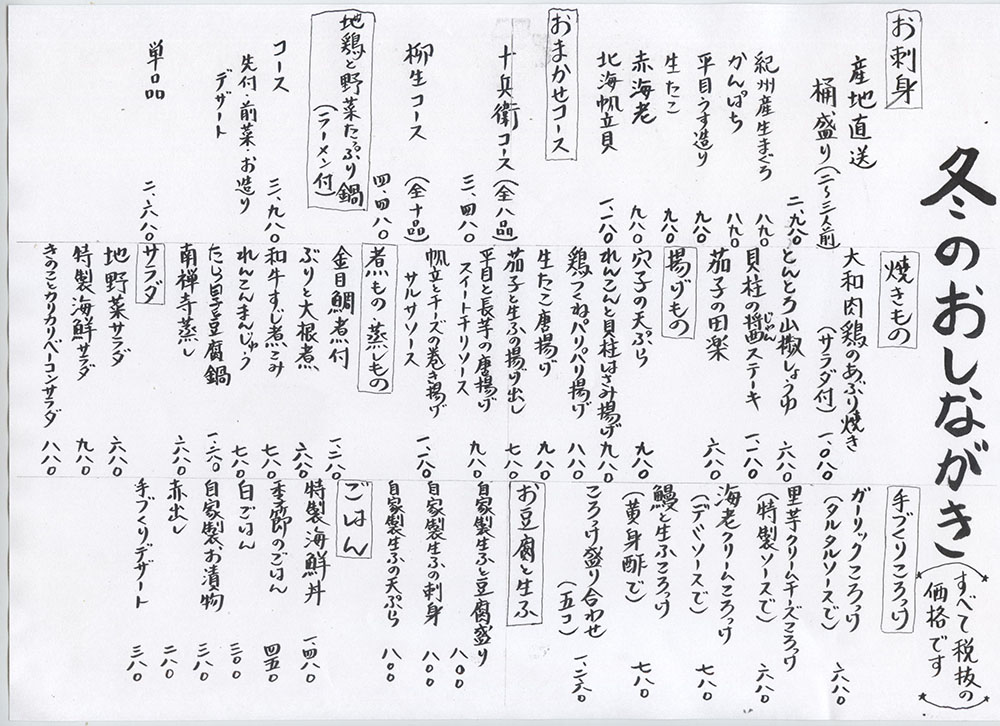 冬のおしながき
すべて税抜の
価格です
お刺身
産地直送
桶盛り(二〜三人前) 二、九八〇
紀州産生まぐろ 九八〇
かんぱち 八八〇
平目うす造り 九八〇
生たこ 八八〇
赤海老 九八〇
北海帆立貝 一、一八〇
おまかせコース
十兵衛コース(全八品)
三、四八〇
柳生コース(全十品)
四、四八〇
地鶏と野菜たっぷり鍋
(ラーメン付)
コース 三、九八〇
先付・前菜・お造り
デザート
単品 二、六八〇
焼きもの
大和肉鶏のあぶり焼き
(サラダ付) 一、〇八〇
とんとろ山椒しょうゆ 六八〇
貝柱の醤じゃんステーキ 一、一八〇
茄子の田楽 六八〇
揚げもの
穴子の天ぷら 九八〇
れんこんと貝柱はさみ揚げ 九八〇
鶏つくねパリパリ揚げ 八八〇
生たこ唐揚げ 九八〇
茄子と生ふの揚げ出し 七八〇
平目と長芋の唐揚げ
スイートチリソース 九八〇
帆立とチーズの巻き揚げ
サルサソース 一、一八〇
煮もの 蒸しもの
金目鯛煮付 一、二八〇
ぶりと大根煮 六八〇
和牛すじ煮こみ 七八〇
れんこんまんじゅう 七八〇
たら白子豆腐鍋 一、二八〇
南禅寺蒸し 六八〇
サラダ
地野菜サラダ 六八〇
特製海鮮サラダ 九八〇
きのことカリカリベーコンサラダ 八八〇
手づくりころっけ
ガーリックころっけ
(タルタルソースで) 六八〇
里芋クリームチーズころっけ
(特製ソースで) 六八〇
海老クリームころっけ
(デベソースで) 七八〇
鰻と生ふころっけ
(黄身酢で) 七八〇
ころっけ盛り合わせ
(五コ) 一、二八〇
お豆腐と生ふ
自家製生ふと豆腐盛り 八〇〇
自家製生ふの刺身 八〇〇
自家製生ふの天ぷら 八〇〇
ごはん
特製海鮮丼 一、四八〇
季節のごはん 四五〇
白ごはん 三〇〇
自家製お漬物 三八〇
赤出し 二八〇
手づくりデザート 三八〇